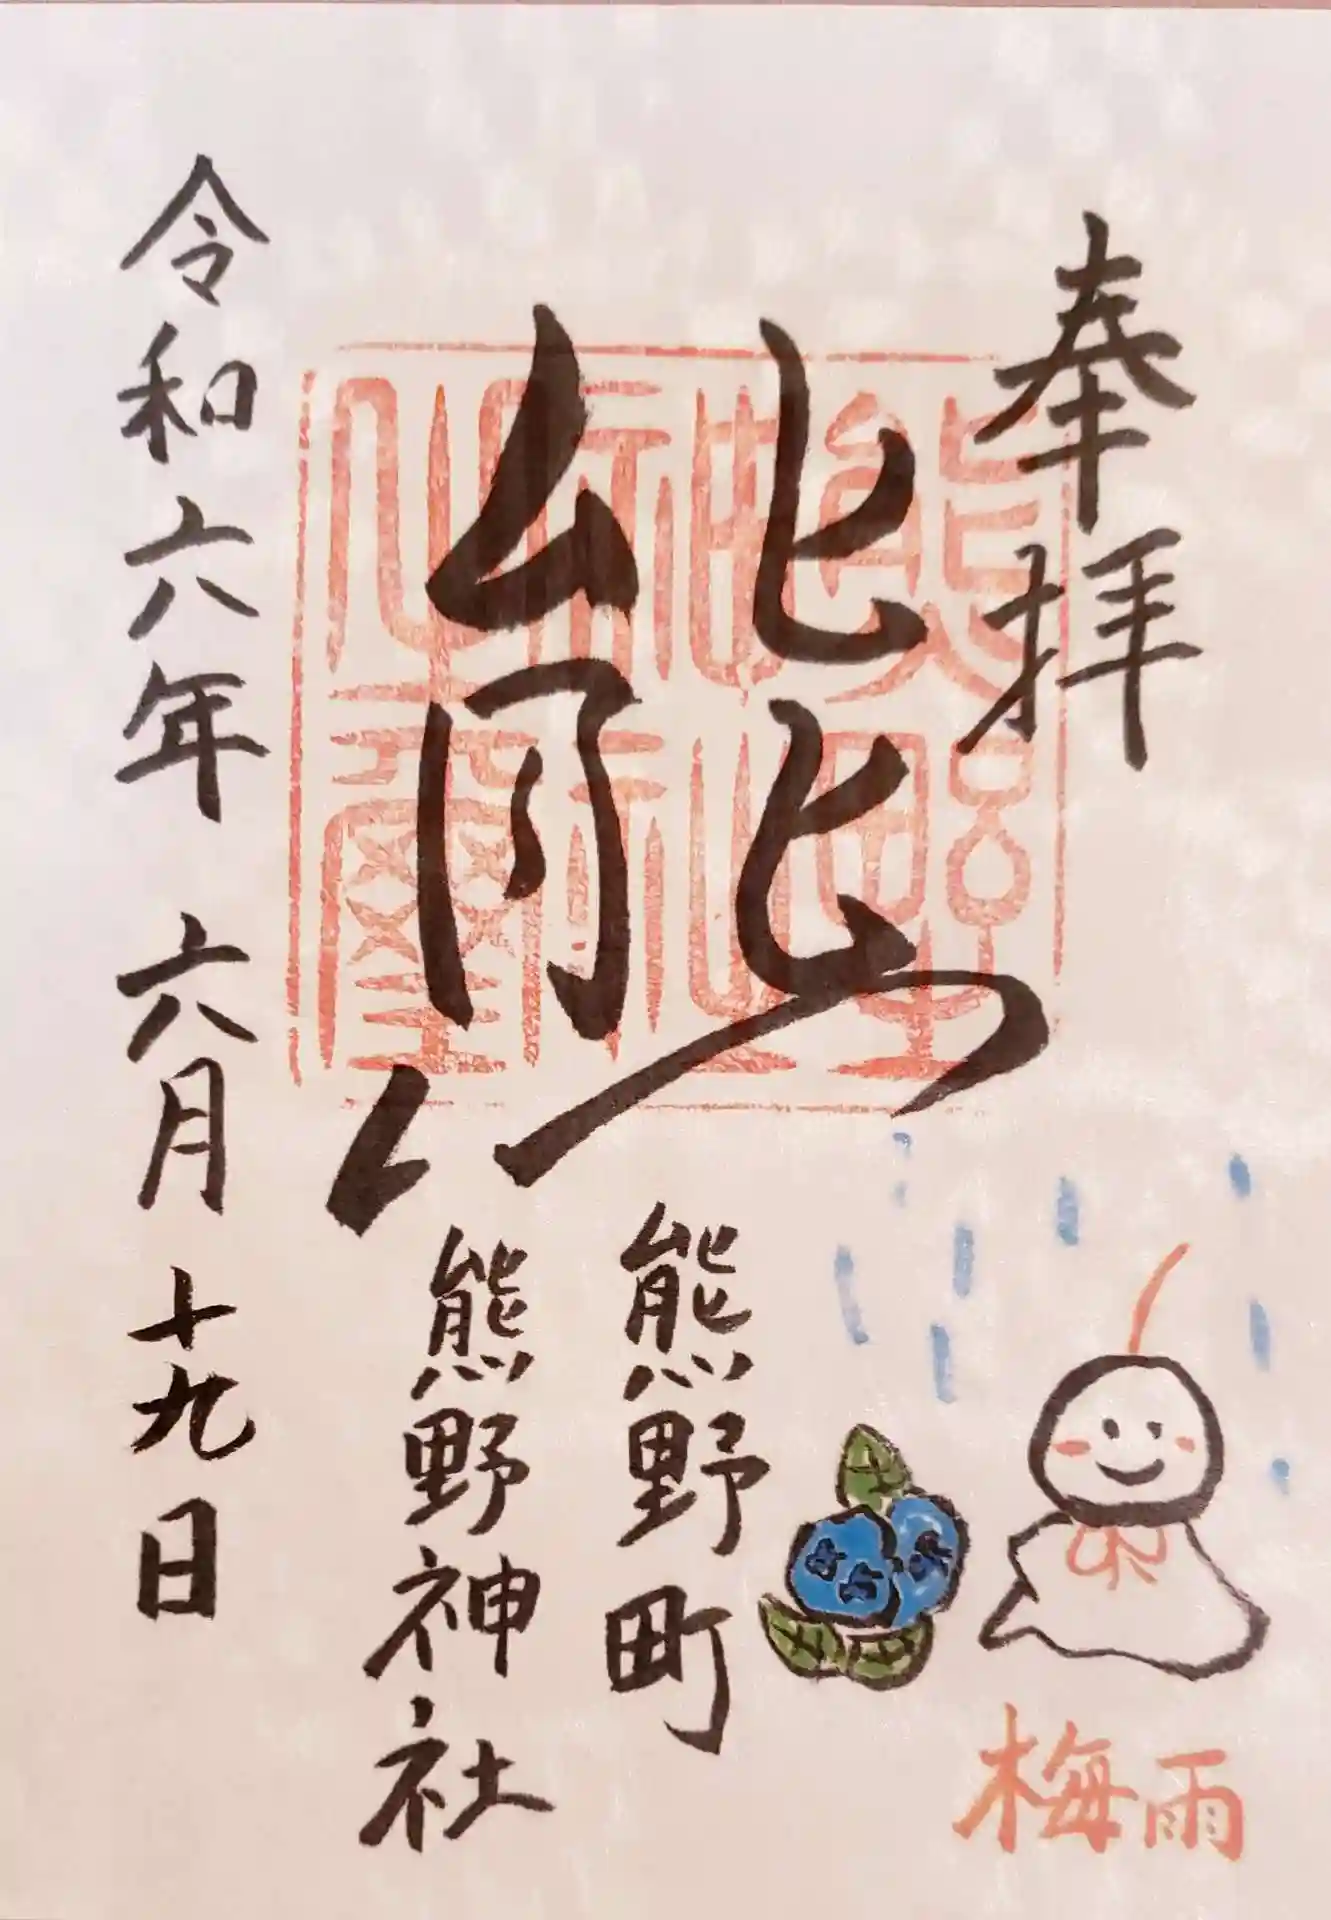 奉拝
熊
熊野
神社
之璽
熊野町
熊野神社
令和六年六月十九日
梅雨